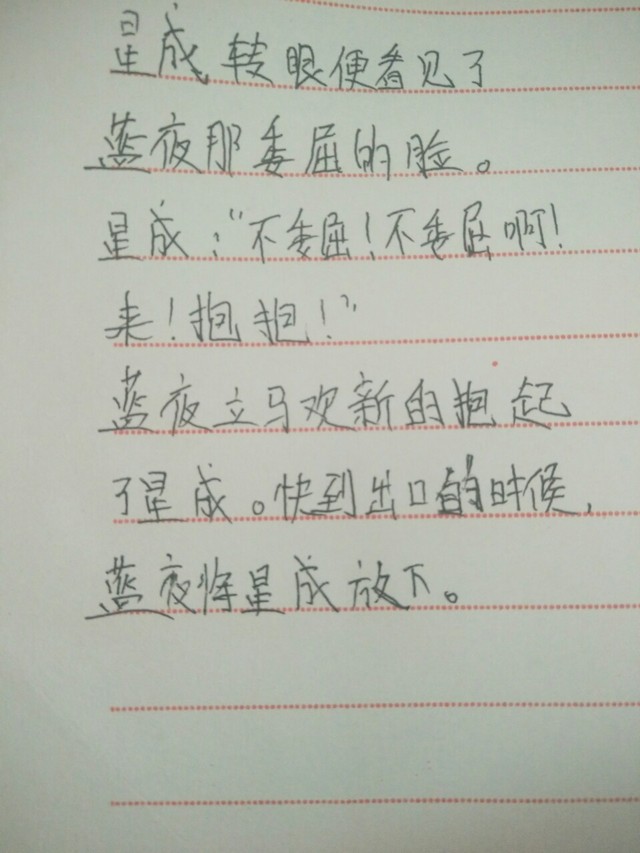 星成转眼便看见了
蓝夜那委屈的脸。
星成：“不委屈！不委屈啊！
来！抱抱！”
蓝夜立马欢新的抱起
了星成。快到出口的时候，
蓝夜将星成放下。